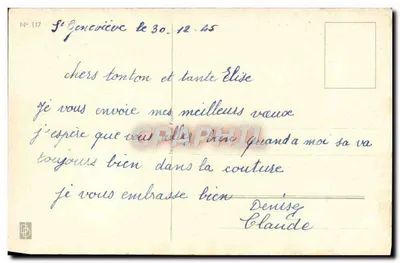 N° 117
Ste Geneviève le 30-12-45
chers tonton et tante Elise
Je vous envoie mes meilleurs vœux
j'espère que vous allez bien quand a moi sa va
toujours bien dans la couture
je vous embrasse bien
Denise
Claude